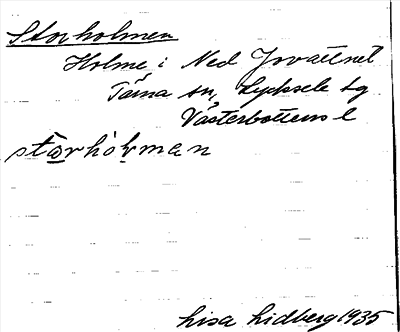 Storholmen
Holme i Ned Jovattnet
Tärna sn, Lycksele lg
Västerbottens l
stơrhȯlmən
Lisa Lidberg 1935